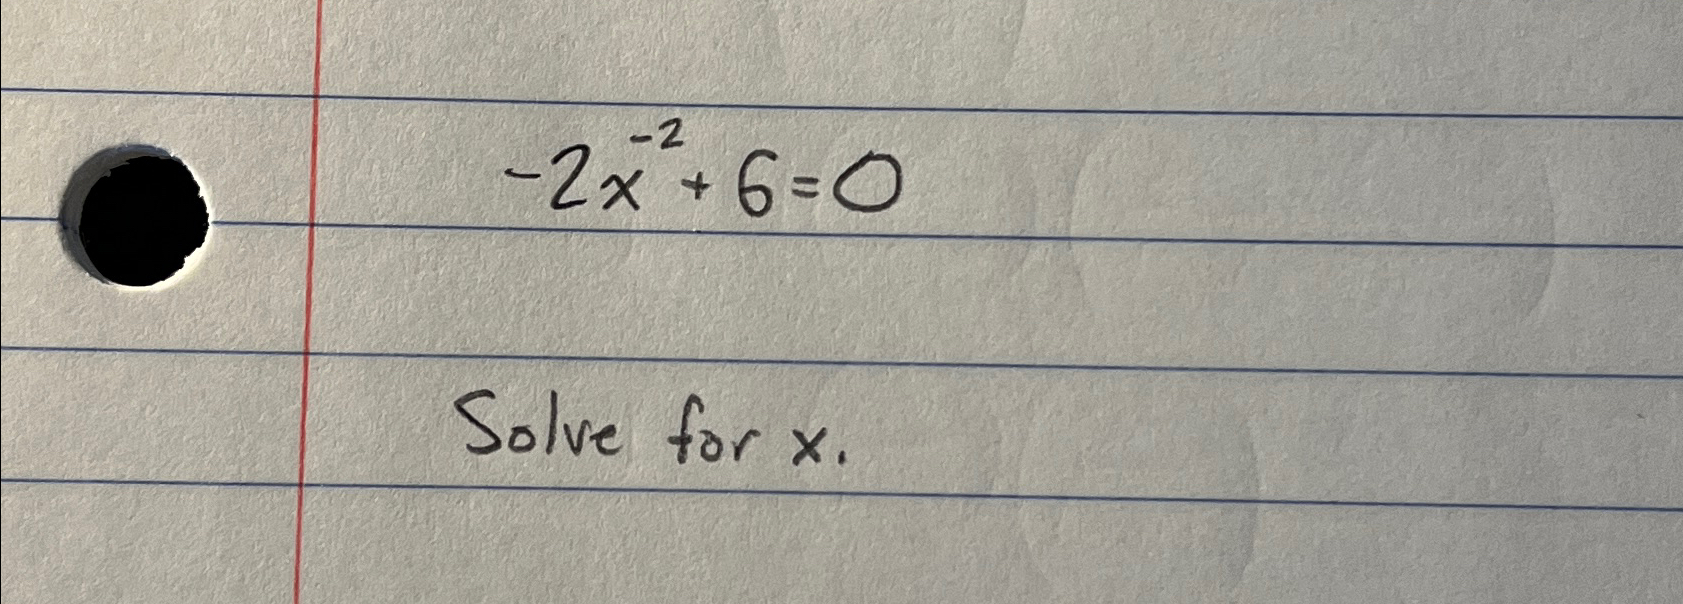 -2x⁻² + 6 = 0
Solve for x.